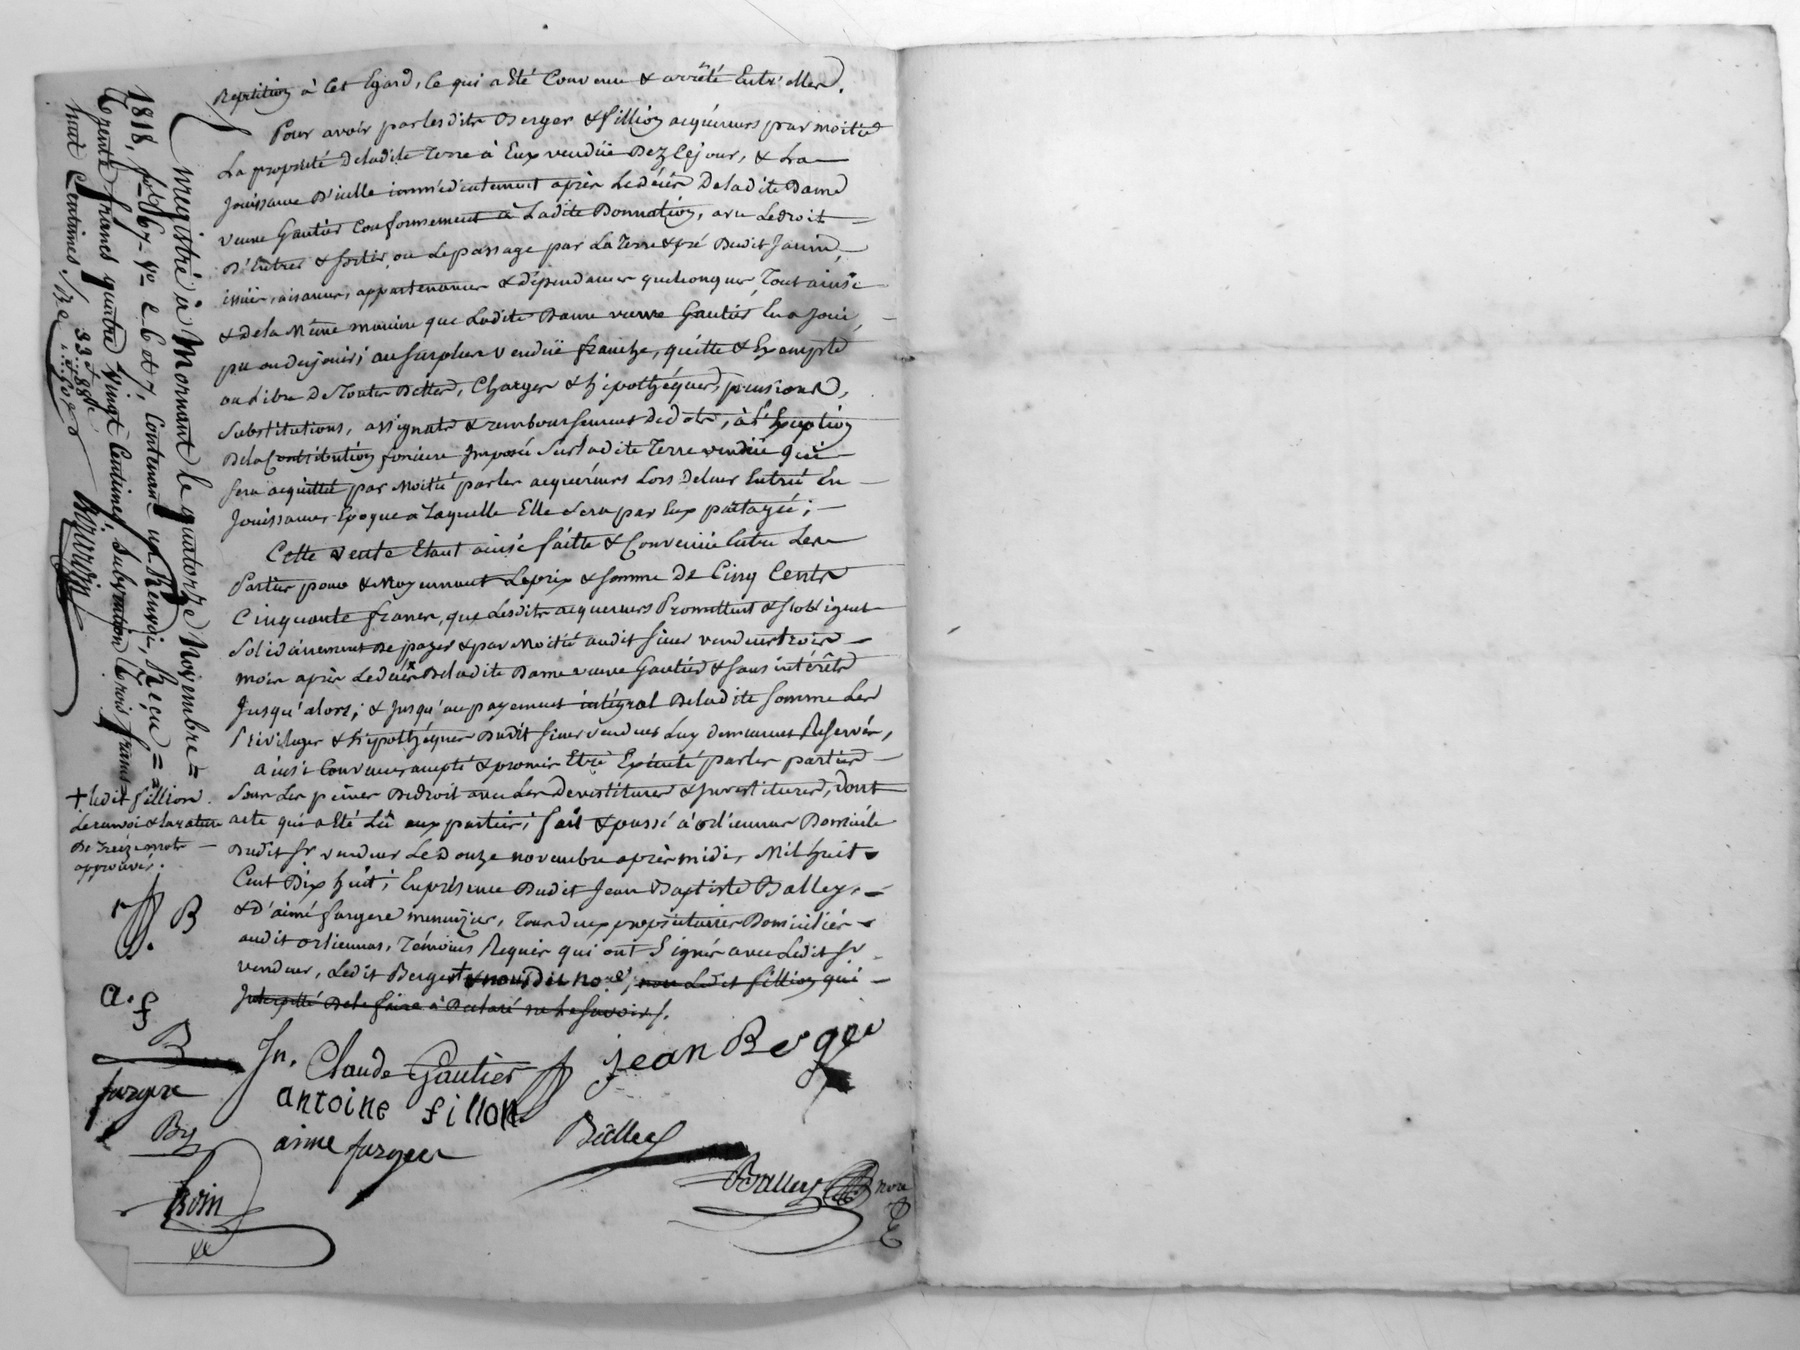 Repetition à Cet Egard, Ce qui a Eté Convenu & arrêté Entr'elles.
Pour avoir par lesdits Berger & fillion acquéreurs par moitié
La propriété de ladite Terre à Eux vendüe Dez Cejour, & La
Jouissance D'icelle immédiatement après Le décès De ladite Dame
veuve Gautier Conformement à Ladite Donnation, avec Le droit
D'Entrer & sortir, ou Le passage par La Terre & pré Dudit Jaumé,
issües, aisances, appartenances & dépendances quelconques, Tout ainsi
& de la Même maniere que Ladite Dame veuve Gautier En a Joui,
pu ou du jouir; au surplus vendüe franche, quitte & Exempte
ou Libre De Toutes Dettes, Charges & hipothéques, pensions,
Substitutions, assignats & remboursement de dots, à L'Exception
De la Contribution fonciere Imposée Sur Ladite Terre vendüe qui
sera acquittée par Moitié par les acquéreurs Lors De leur Entrée En
Jouissance Epoque à Laquelle Elle sera par Eux partagée;
Cette vente Etant ainsi faitte & Convenüe Entre Les
Parties pour & Moyennant Le prix & somme De Cinq Cents
Cinquante francs, que Lesdits acquereurs Promettent & s'obligent
Solidairement De payer & par Moitié audit sieur vendeur trois
mois après Le décès De ladite Dame veuve Gautier & sans intérêts
Jusqu'alors; & Jusqu'au payement intégral De ladite somme Les
Priviléges & hipothéques Dudit sieur vendeur Luy demeurent Reservés,
ainsi Convenu accepté & promis Etre Exécuté par les parties
Sous Les peines De droit avec Les Devestitures & Investitures, Dont
acte qui a Eté Lû aux parties; fait & passé à orliennas Domicile
Dudit Sr vendeur Le Douze novembre après midi, Mil huit
Cent Dix huit; En présence Dudit Jean Baptiste Balley,
& D'aimé fargere menuizier, Tous deux propriétaires Domiciliés
audit orliennas, Témoins Requis qui ont Signés avec Ledit Sr
vendeur, Ledit Berger + & nousdit nore, non Ledit fillion qui
Interpellé De le faire à Declaré ne le savoir.
+ ledit fillion.
Le renvoi & la rature
De treize mots
approuvés.
B
a. f
B
fargere
By
Jn. Claude Gautier
jean Berger
antoine fillon
aime fargere
Balley
Balley nore
Enregistré à Mornant le quatorze Novembre
1818, fo 67 Vo C. 6 et 7, Contenant un Renvoi, Reçu
trente francs quatre Vingt Centimes, Subvention trois francs
huit Centimes.
33 f 88 c